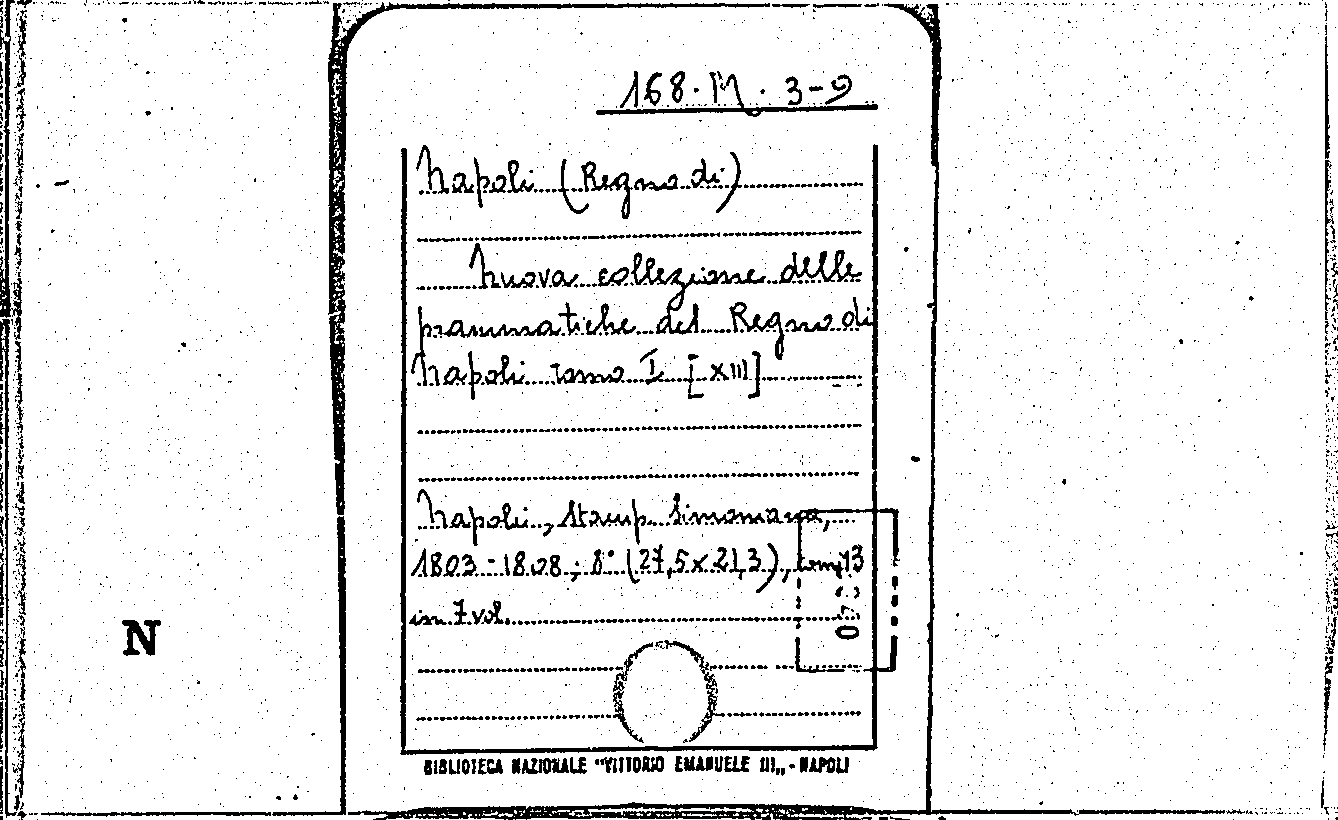 168. M. 3-9
Napoli (Regno di)
Nuova collezione delle
prammatiche del Regno di
Napoli tomo I [XIII]
Napoli, Stamp. Simoniana,
1803-1808; 8° (27,5x21,3), tomi 13
in 7 vol.
N
BIBLIOTECA NAZIONALE "VITTORIO EMANUELE III„ - NAPOLI